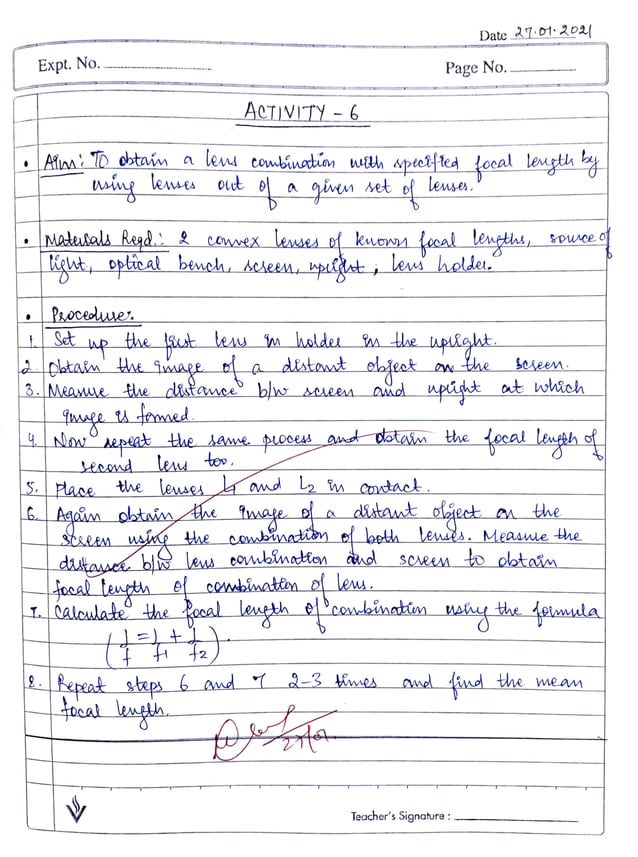 Date 27.01.2021
Expt. No.
Page No.
ACTIVITY - 6
• Aim: To obtain a lens combination with specified focal length by
using lenses out of a given set of lenses.
• Materials Reqd.: 2 convex lenses of known focal lengths, source of
light, optical bench, screen, upright, lens holder.
• Procedure:
1. Set up the first lens in holder in the upright.
2. Obtain the image of a distant object on the screen.
3. Measure the distance b/w screen and upright at which
image is formed.
4. Now repeat the same process and obtain the focal length of
second lens too.
5. Place the lenses L1 and L2 in contact.
6. Again obtain the image of a distant object on the
screen using the combination of both lenses. Measure the
distance b/w lens combination and screen to obtain
focal length of combination of lens.
7. Calculate the focal length of combination using the formula
(1/f = 1/f1 + 1/f2).
8. Repeat steps 6 and 7 2-3 times and find the mean
focal length.
Teacher's Signature :